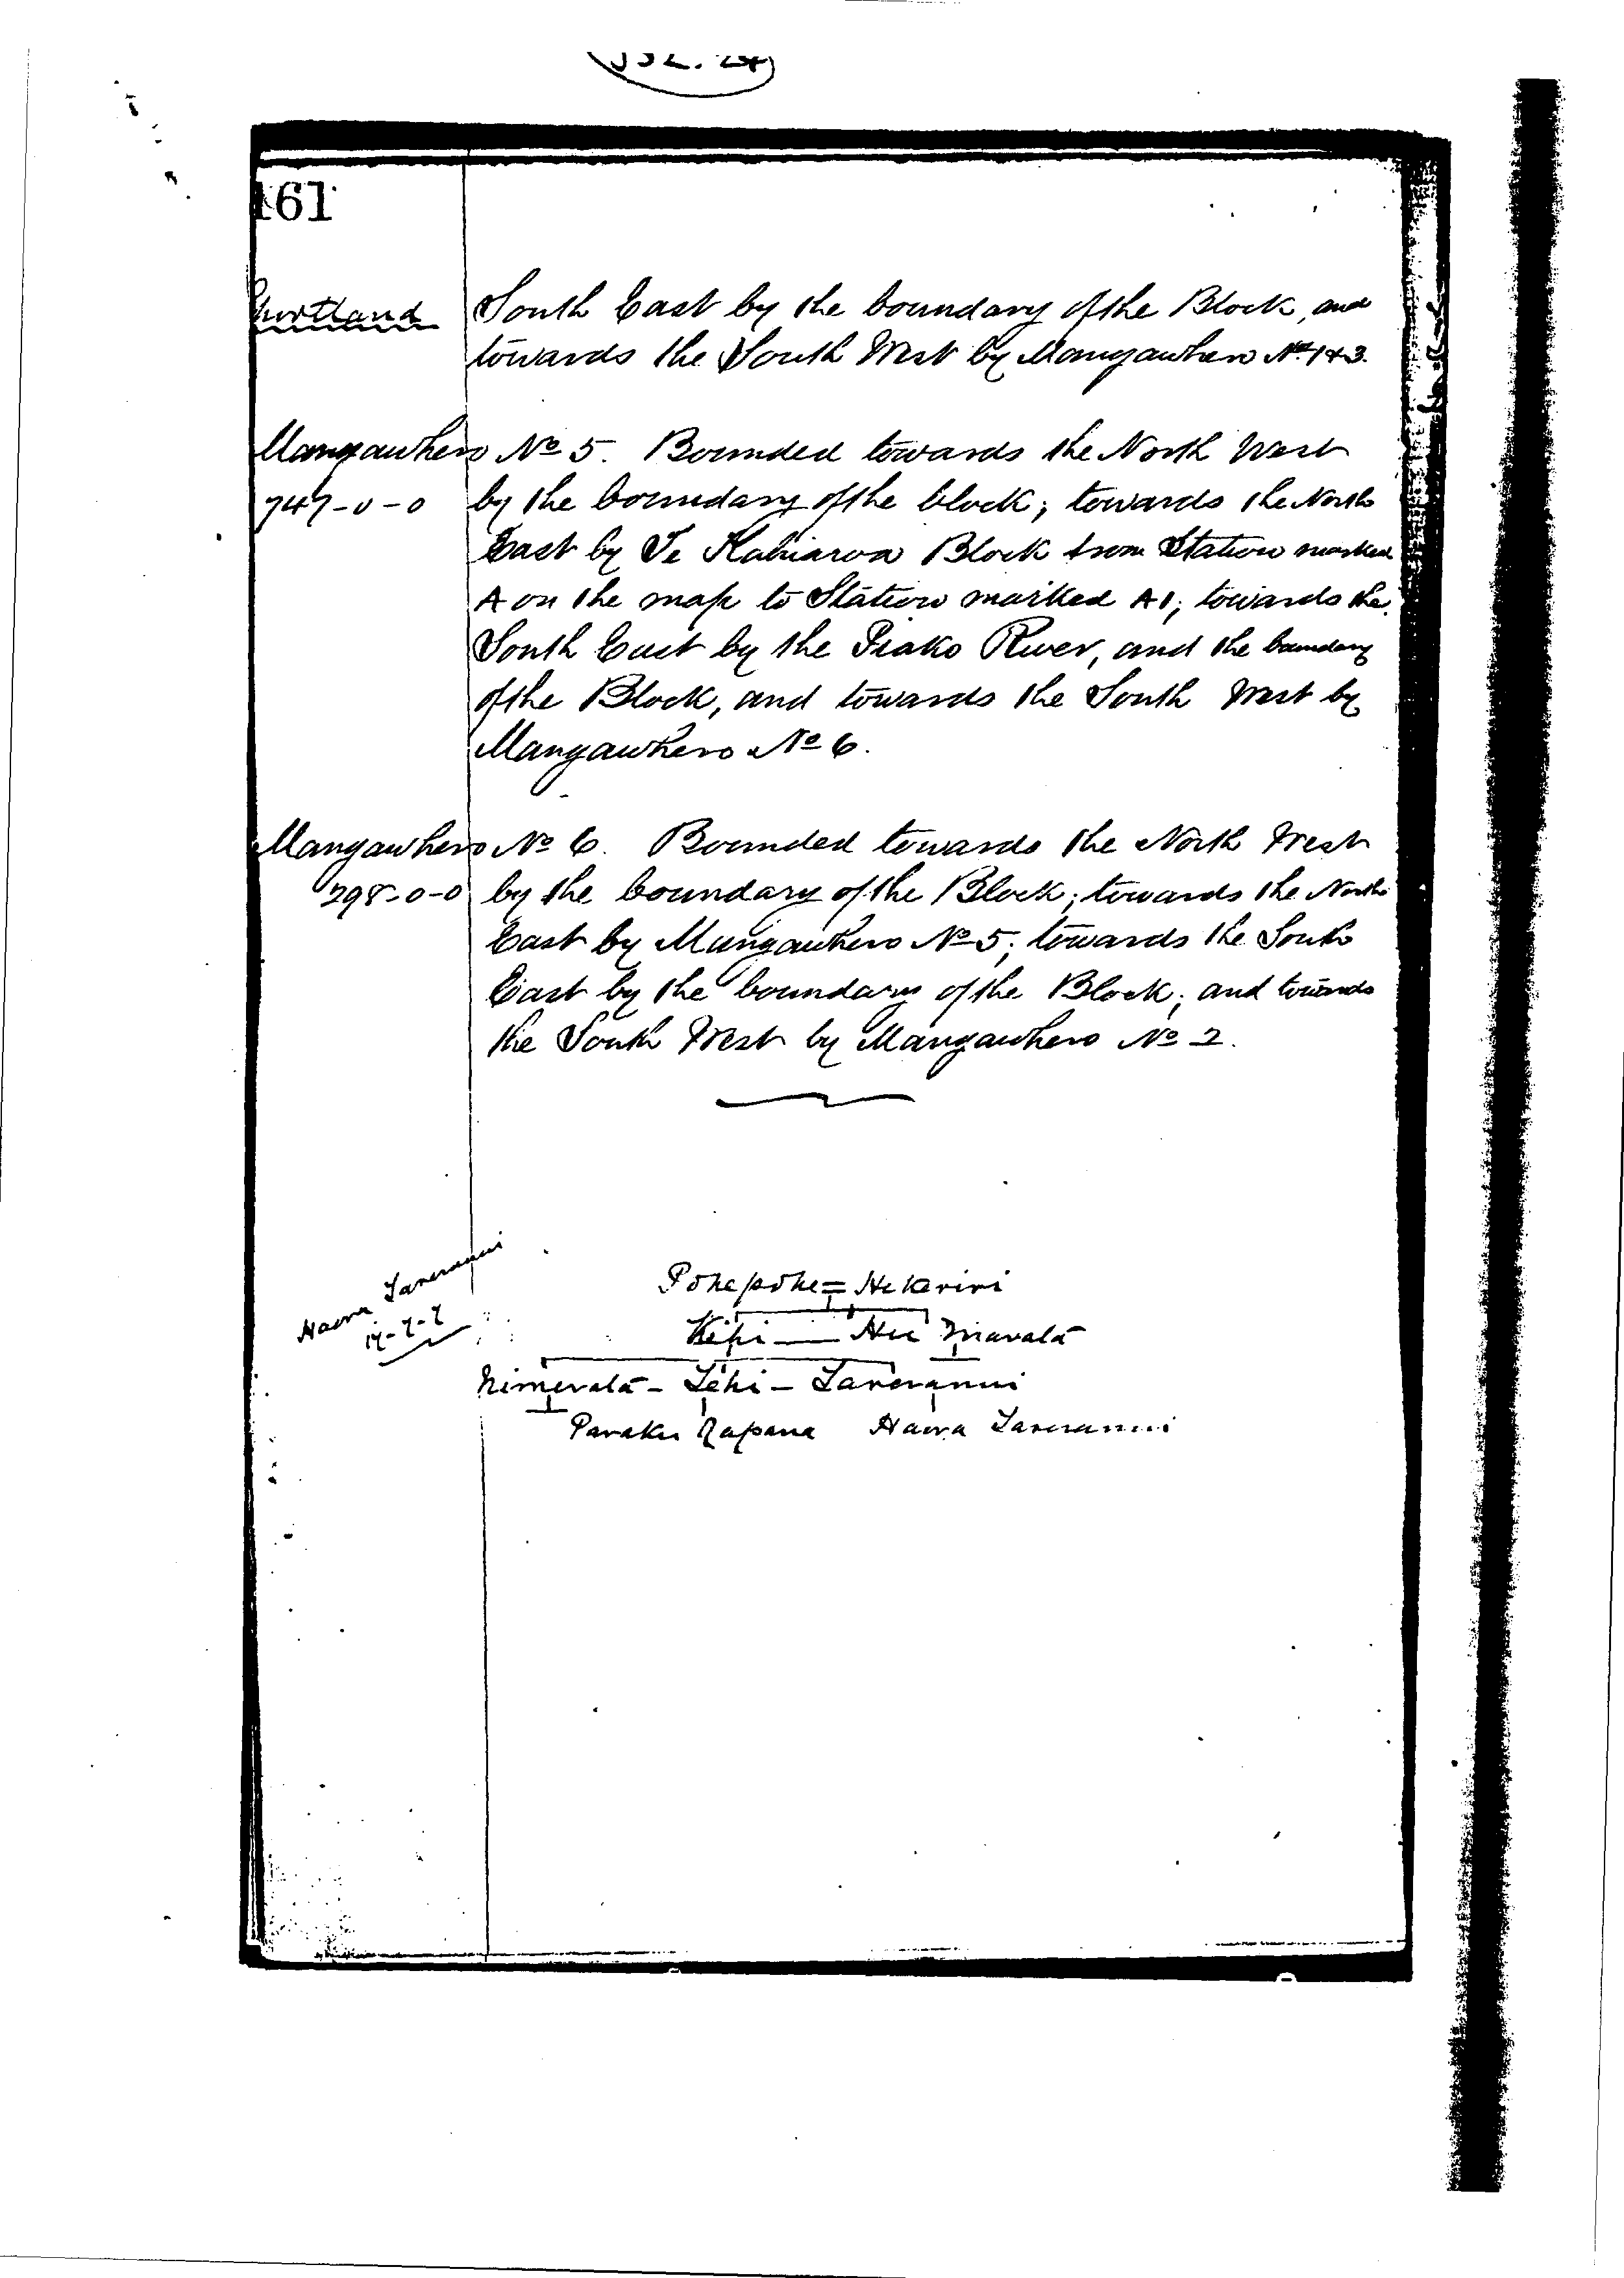 161
Shortland
South East by the boundary of the Block, and
towards the South West by Mangawhero Nos 1 & 3.
Mangawhero No 5. Bounded towards the North West
747-0-0 by the boundary of the block; towards the North
East by Te Kahiaroa Block from Station marked
A on the map to Station marked A1; towards the
South East by the Piako River, and the boundary
of the Block, and towards the South West by
Mangawhero No 6.
Mangawhero No 6. Bounded towards the North West
298-0-0 by the boundary of the Block; towards the North
East by Mangawhero No 5; towards the South
East by the boundary of the Block; and towards
the South West by Mangawhero No 2.
Haora Tareranui
Pohepohe = Hekeriri
Kepi — Niamata
Nimerata - Tehi - Tareranui
Paraku Rapana Haora Tareranui